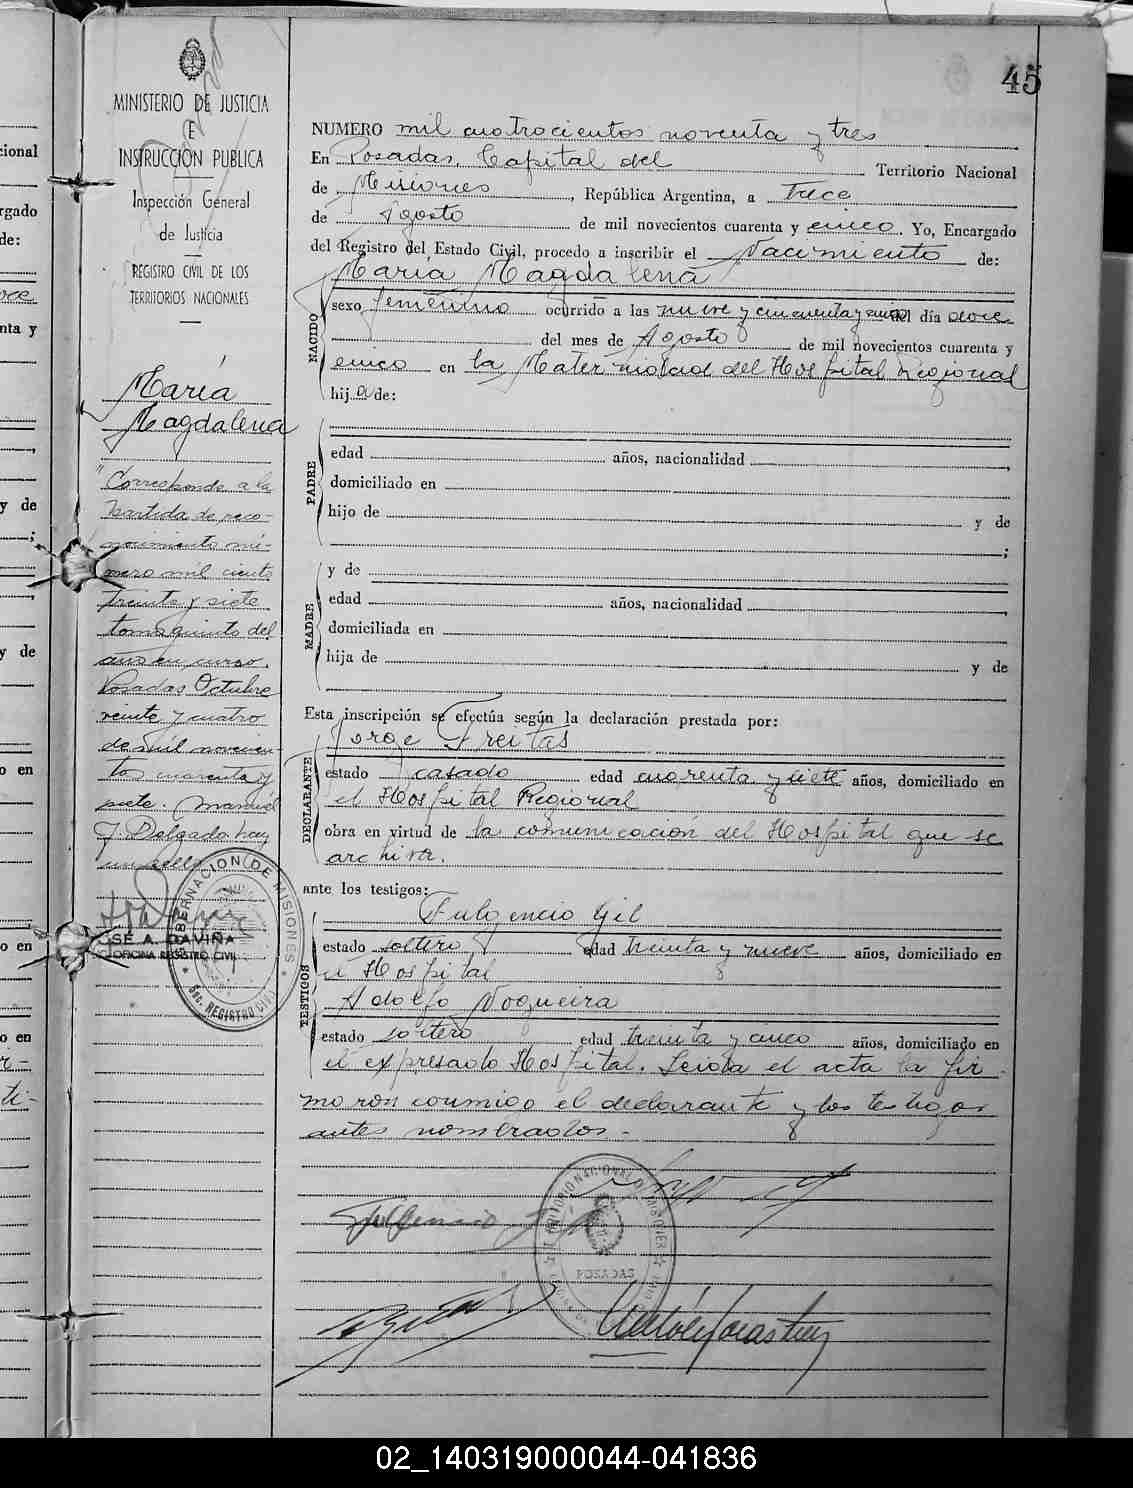 45
MINISTERIO DE JUSTICIA
E
INSTRUCCIÓN PUBLICA
Inspección General
de Justicia
REGISTRO CIVIL DE LOS
TERRITORIOS NACIONALES
María
Magdalena
"Corresponde a la
Partida de reco-
nocimiento nú-
mero mil ciento
treinta y siete
tomo quinto del
año en curso.
Posadas Octubre
veinte y cuatro
de mil novecien-
tos cuarenta y
siete. Manuel
J. Delgado hay
un sello
JOSE A. DAVIÑA
OFICINA REGISTRO CIVIL
GOBERNACION DE MISIONES
REGISTRO CIVIL
NUMERO mil cuatrocientos noventa y tres
En Posadas, Capital del Territorio Nacional
de Misiones, República Argentina, a trece
de Agosto de mil novecientos cuarenta y cinco. Yo, Encargado
del Registro del Estado Civil, procedo a inscribir el Nacimiento de:
María Magdalena
NACIDO
sexo femenino ocurrido a las nueve y cincuenta y cinco del día doce
del mes de Agosto de mil novecientos cuarenta y
cinco en la Maternidad del Hospital Regional
hija de:
PADRE
edad años, nacionalidad
domiciliado en
hijo de y de
;
MADRE
y de
edad años, nacionalidad
domiciliada en
hija de y de
Esta inscripción se efectúa según la declaración prestada por:
Jorge Freitas
DECLARANTE
estado casado edad cuarenta y siete años, domiciliado en
el Hospital Regional
obra en virtud de la comunicación del Hospital que se
archiva.
ante los testigos:
Fulgencio Gil
TESTIGOS
estado soltero edad treinta y nueve años, domiciliado en
el Hospital
Adolfo Nogueira
estado soltero edad treinta y cinco años, domiciliado en
el expresado Hospital. Leida el acta la fir-
maron conmigo el declarante y los testigos
antes nombrados.-
Fulgencio Gil
POSADAS
02_140319000044-041836